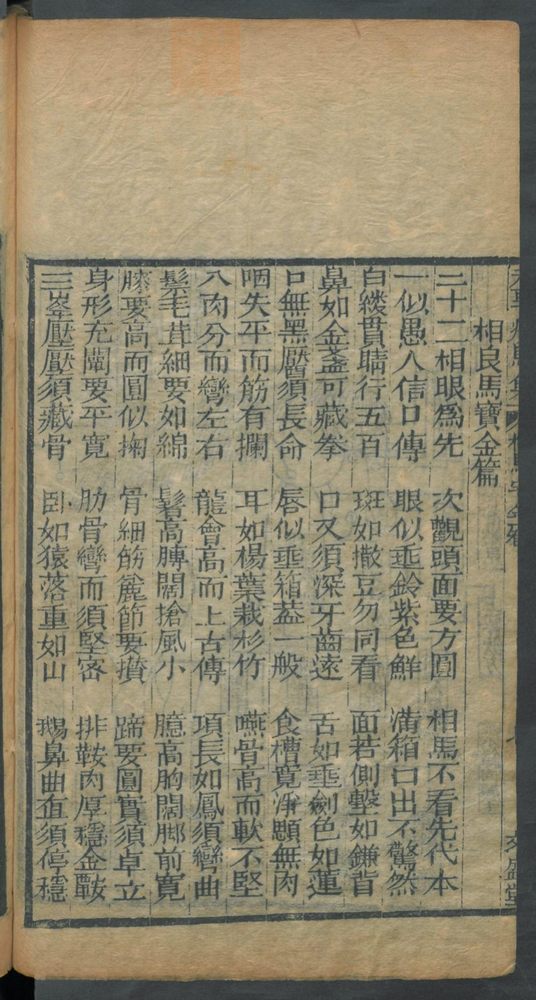 相良馬寶金篇
三十二相眼為先 次觀頭面要方圓 相馬不看先代本
一似愚人信口傳 眼似垂鈴紫色鮮 滿箱凸出不驚然
白縷貫睛行五百 斑如撒豆勿同看 面若側擊如鎌背
鼻如金盞可藏拳 口叉須深牙齒遠 舌如垂劍色如蓮
口無黑靨須長命 唇似垂箱蓋一般 食槽寛淨顋無肉
咽失平而筋有攔 耳如楊葉裁杉竹 嚥骨高而軟不堅
八肉分而彎左右 龍會高而上古傳 項長如鳳須彎曲
鬃毛茸細要如綿 鬐高膊闊搶風小 臆高胸闊脚前寛
膝要高而圓似掬 骨細筋麄節要攢 蹄要圓實須卓立
身形充闊要平寛 肋骨彎而須堅密 排鞍肉厚穩金鞍
三峯壓壓須藏骨 卧如猿落重如山 鵝鼻曲直須停穩